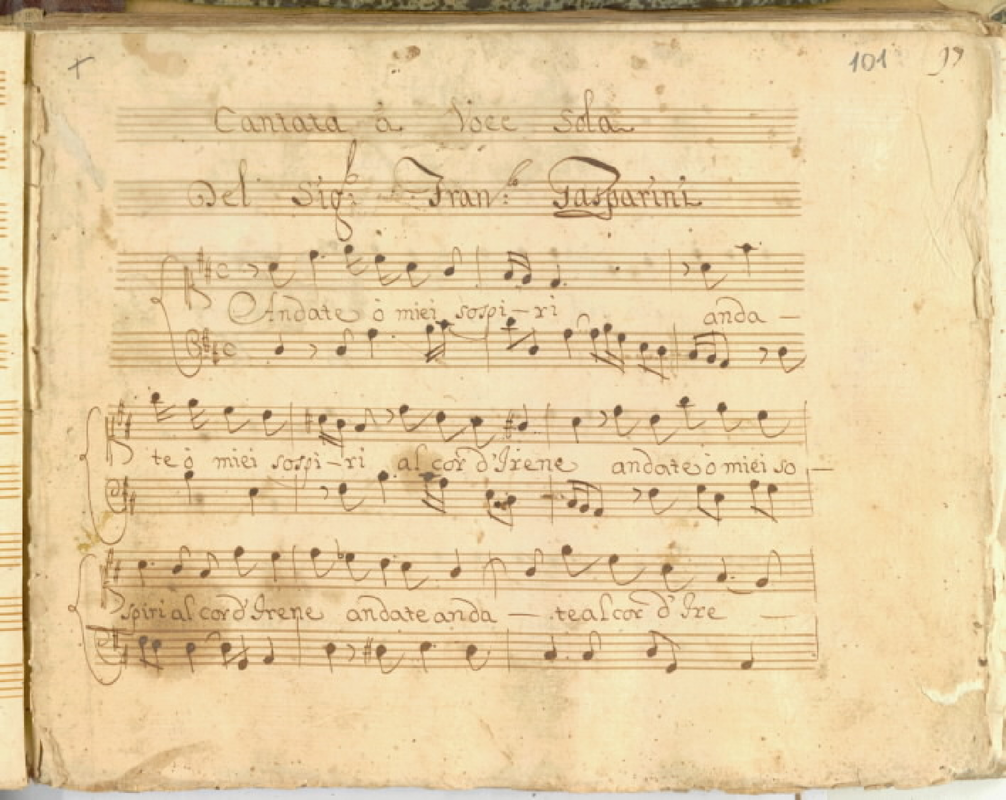 101 19
Cantata à Voce Sola
Del Sig.r Fran.co Gasparini
Andate ò miei sospi-ri anda-
te ò miei sospi-ri al cor d'Irene andate ò miei so-
spiri al cor d'Irene andate anda - te al cor d'Ire -